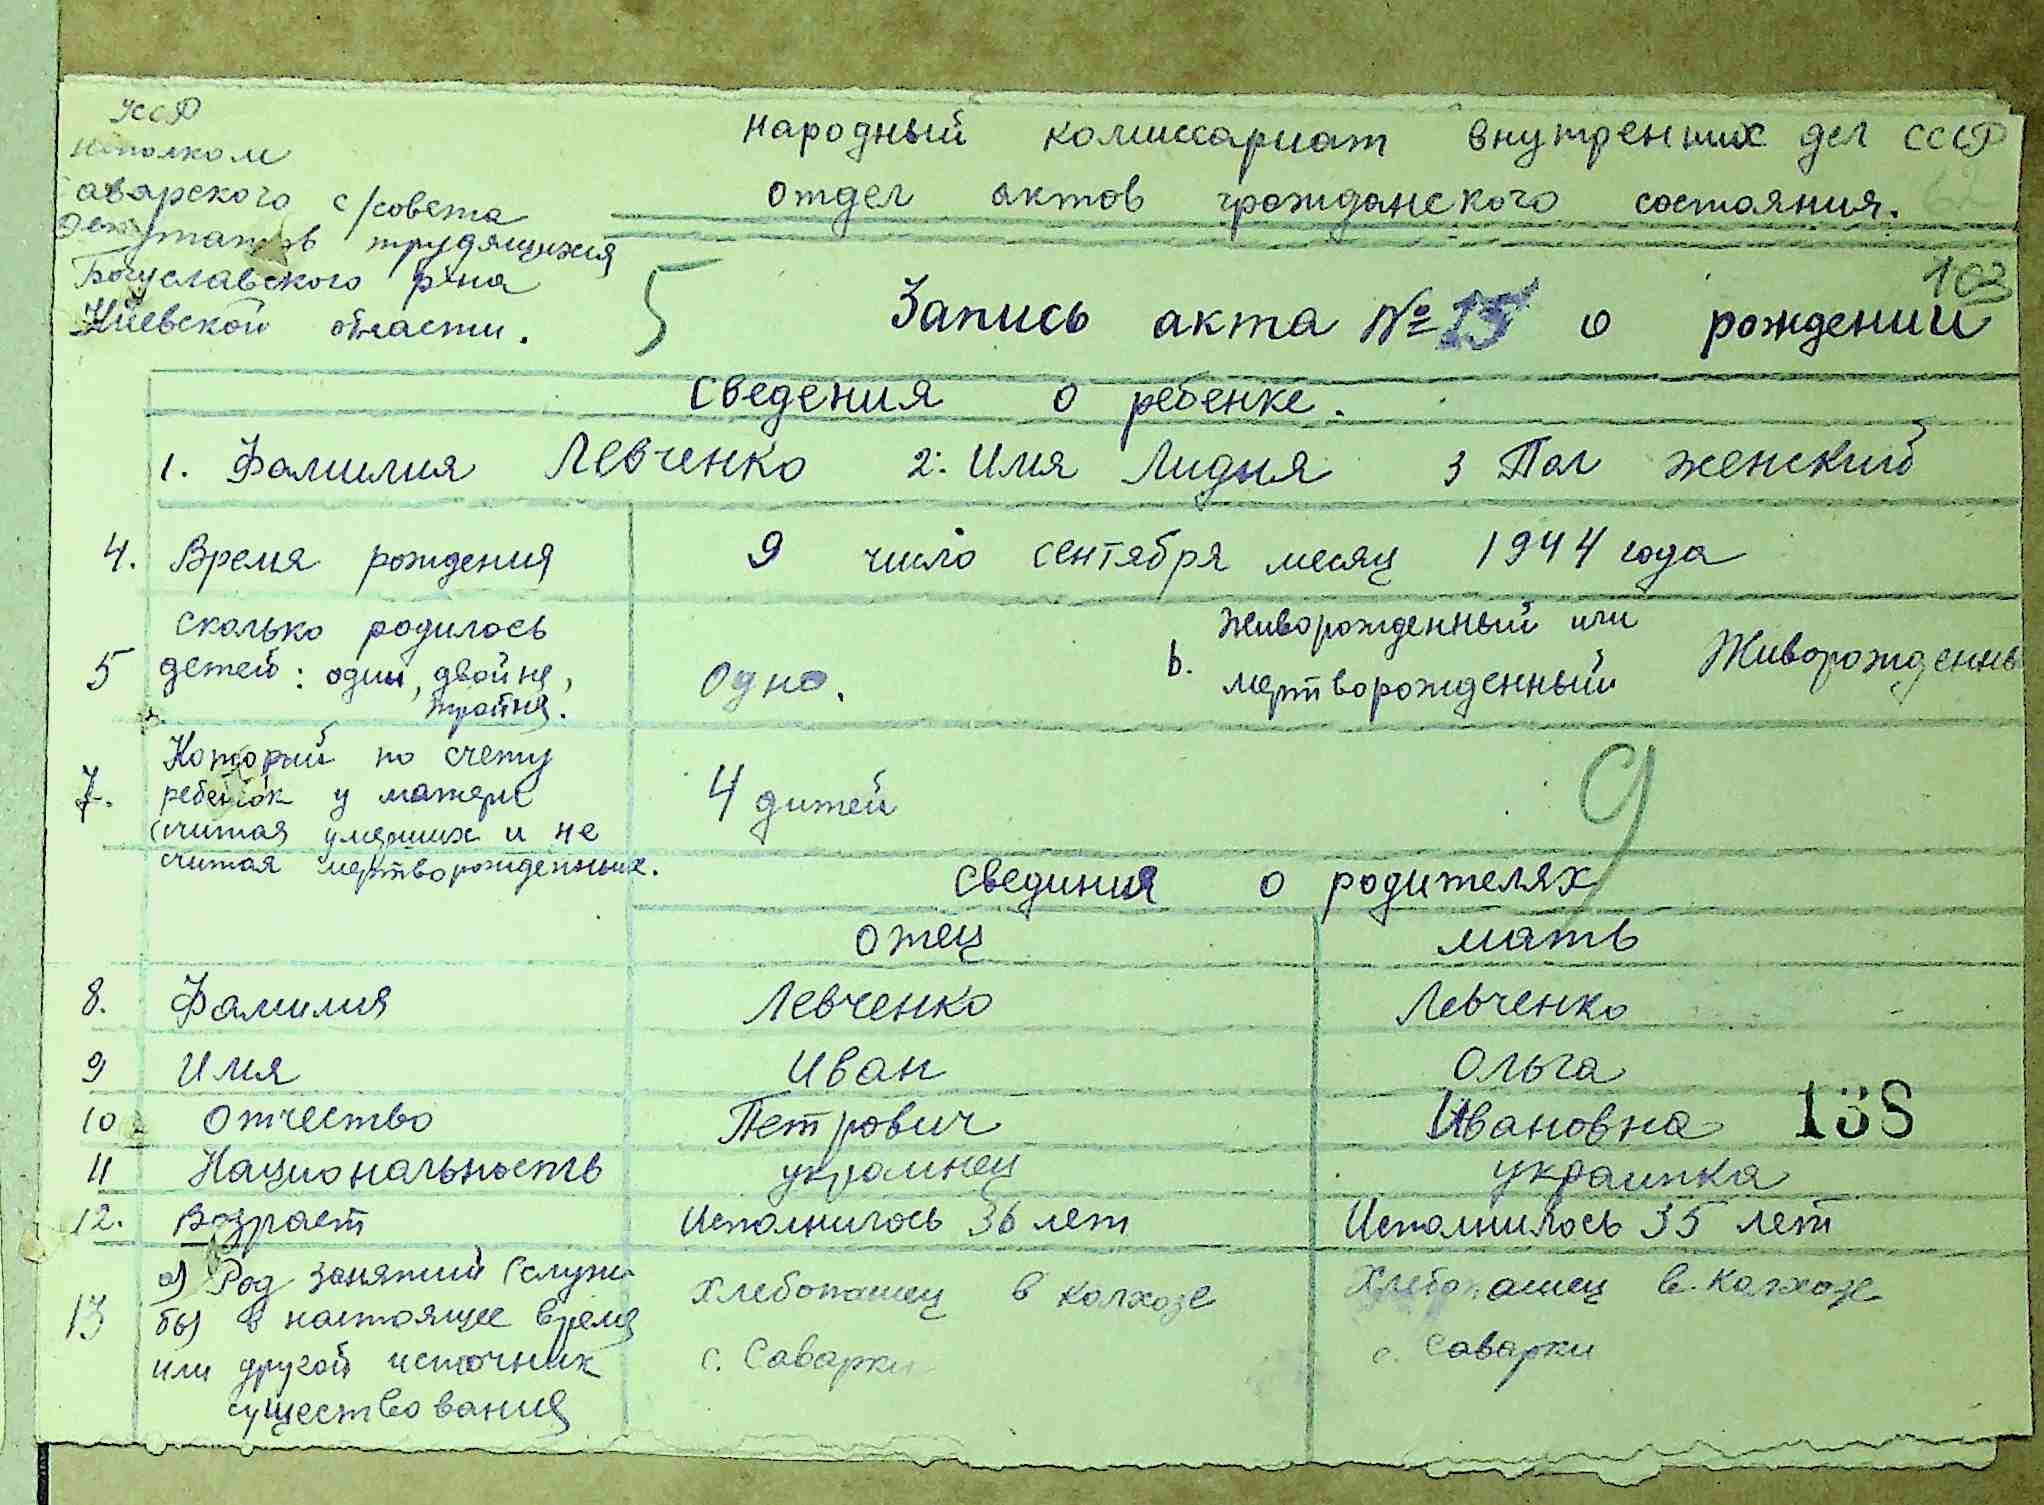 УССР
исполком
аварского с/совета
депутатов трудящихся
Богуславского р-на
Киевской области.
народный комиссариат внутренних дел СССР
отдел актов гражданского состояния. 62
103
5
Запись акта № 15 о рождении
Сведения о ребенке.
1. Фамилия Левченко 2. Имя Лидия 3 Пол женский
4. Время рождения 9 число сентября месяц 1944 года
5 сколько родилось
детей: один, двойне,
тройня.
Одно.
6. живорожденный или
мертворожденный
Живорожденны
7. Которий по счету
ребенок у матери
считая умерших и не
считая мертворожденных.
4 дитей
9
Свединия о родителях
отец мать
8. Фамилия Левченко Левченко
9 Имя Иван Ольга
10 Отчество Петрович Ивановна 138
11 Национальность украинец украинка
12. Возраст Исполнилось 36 лет Исполнилось 35 лет
13 а) Род занятий (служ
бы) в настоящее время
или другой источник
существования
Хлебопашец в колхозе
с. Саварки
Хлебопашец в колхозе
с. Саварки